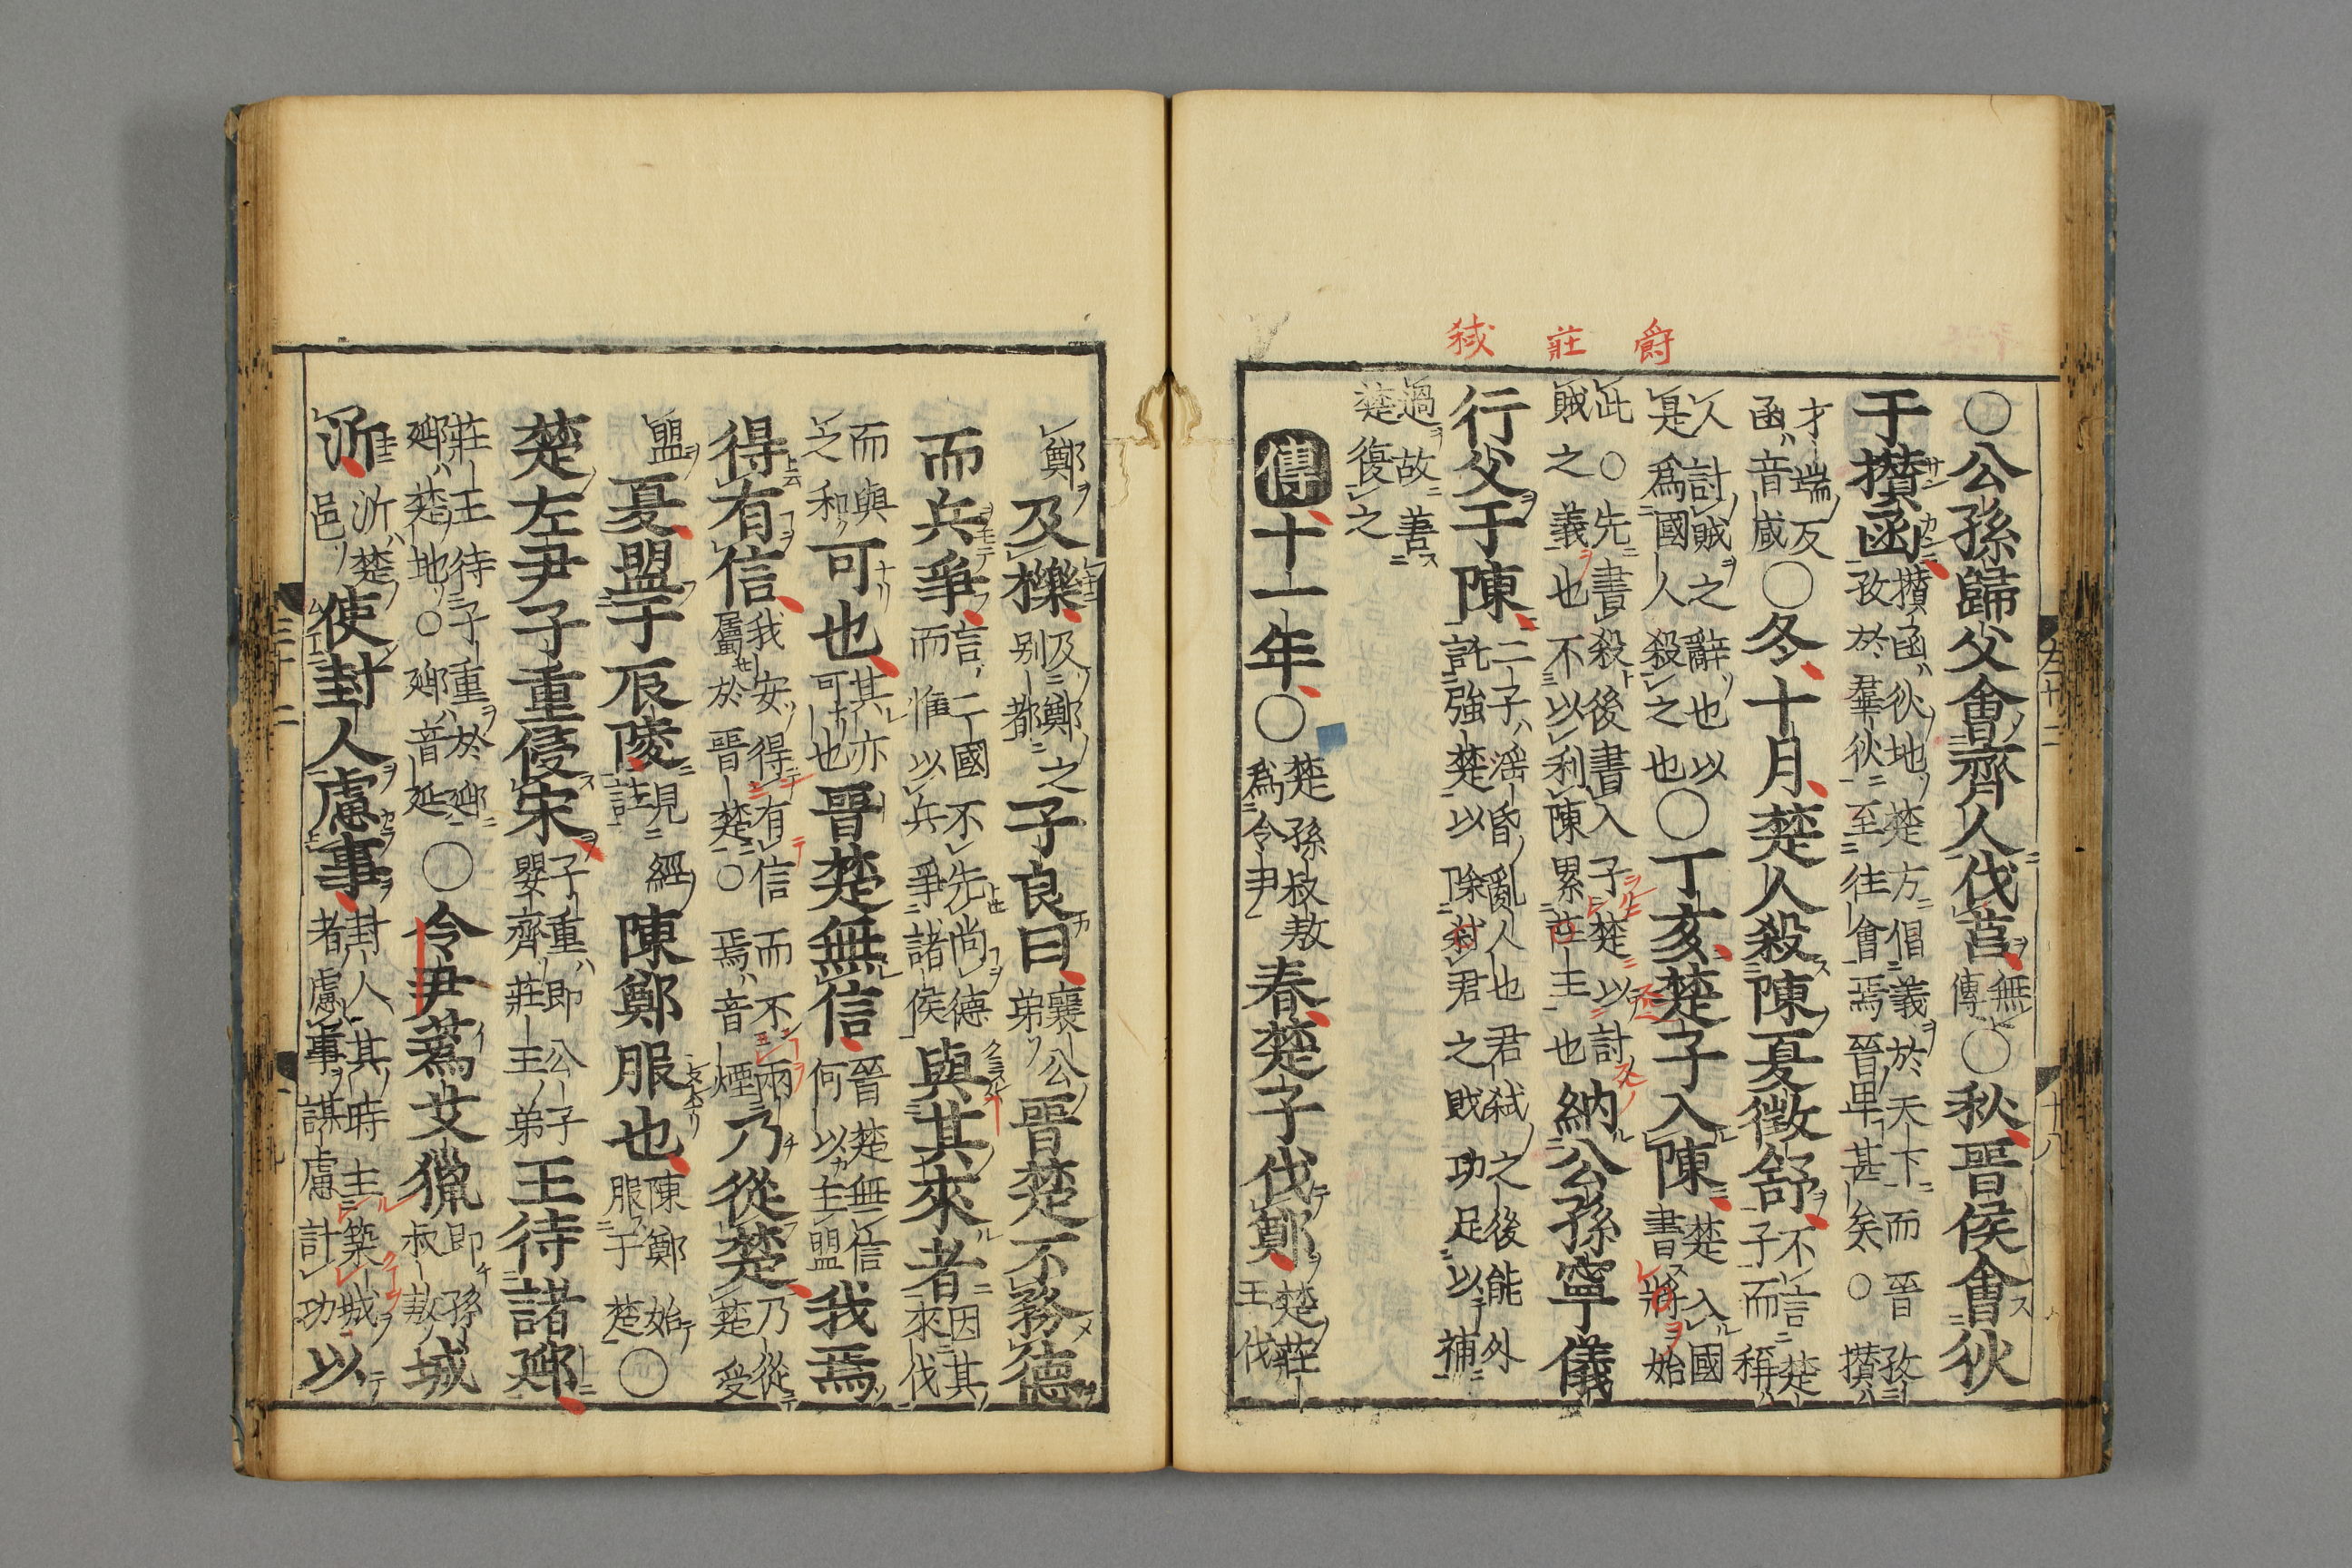 爵
莊
弑
○公孫歸父會齊人伐莒無傳○秋晉侯會狄
于攅函攅函狄地楚方倡義於天下而晉孜孜於羣狄至往會焉晉卑甚矣○攅
才端反函音咸○冬十月楚人殺陳夏徵舒不言楚子而稱
人討賊之辭也以是爲國人殺之也○丁亥楚子入陳楚入國書將始
此○先書殺後書入子楚以討賊之義也不以利陳累莊主也納公孫寧儀
行父于陳二子滛昏亂人也君弑之後能外託強楚以除弑君之賊功足以補
過故善楚復之
傳十一年○楚孫叔敖爲令尹春楚子伐鄭楚莊王伐
鄭及櫟及鄭之别都子良曰襄公弟晉楚不務德
而兵爭言二國不先尚德而惟以兵爭諸侯與其來者因其來伐
而與之和可也其亦可也晉楚無信晉楚無信何以主盟我焉
得有信我安得有信而不兩屬於晉楚○焉音煙乃從楚乃從楚受
盟夏盟于辰陵見經註陳鄭服也陳鄭始服于楚○
楚左尹子重侵宋子重即公子嬰齊莊王弟王待諸郔
莊王待子重於郔郔楚地○郔音延○令尹蒍艾獵即孫叔敖城
沂沂楚邑使封人慮事封人其時主築城者慮事謀慮計功以